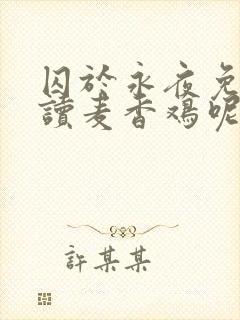 囚於永夜免
讀麦香鸡呢
許某某